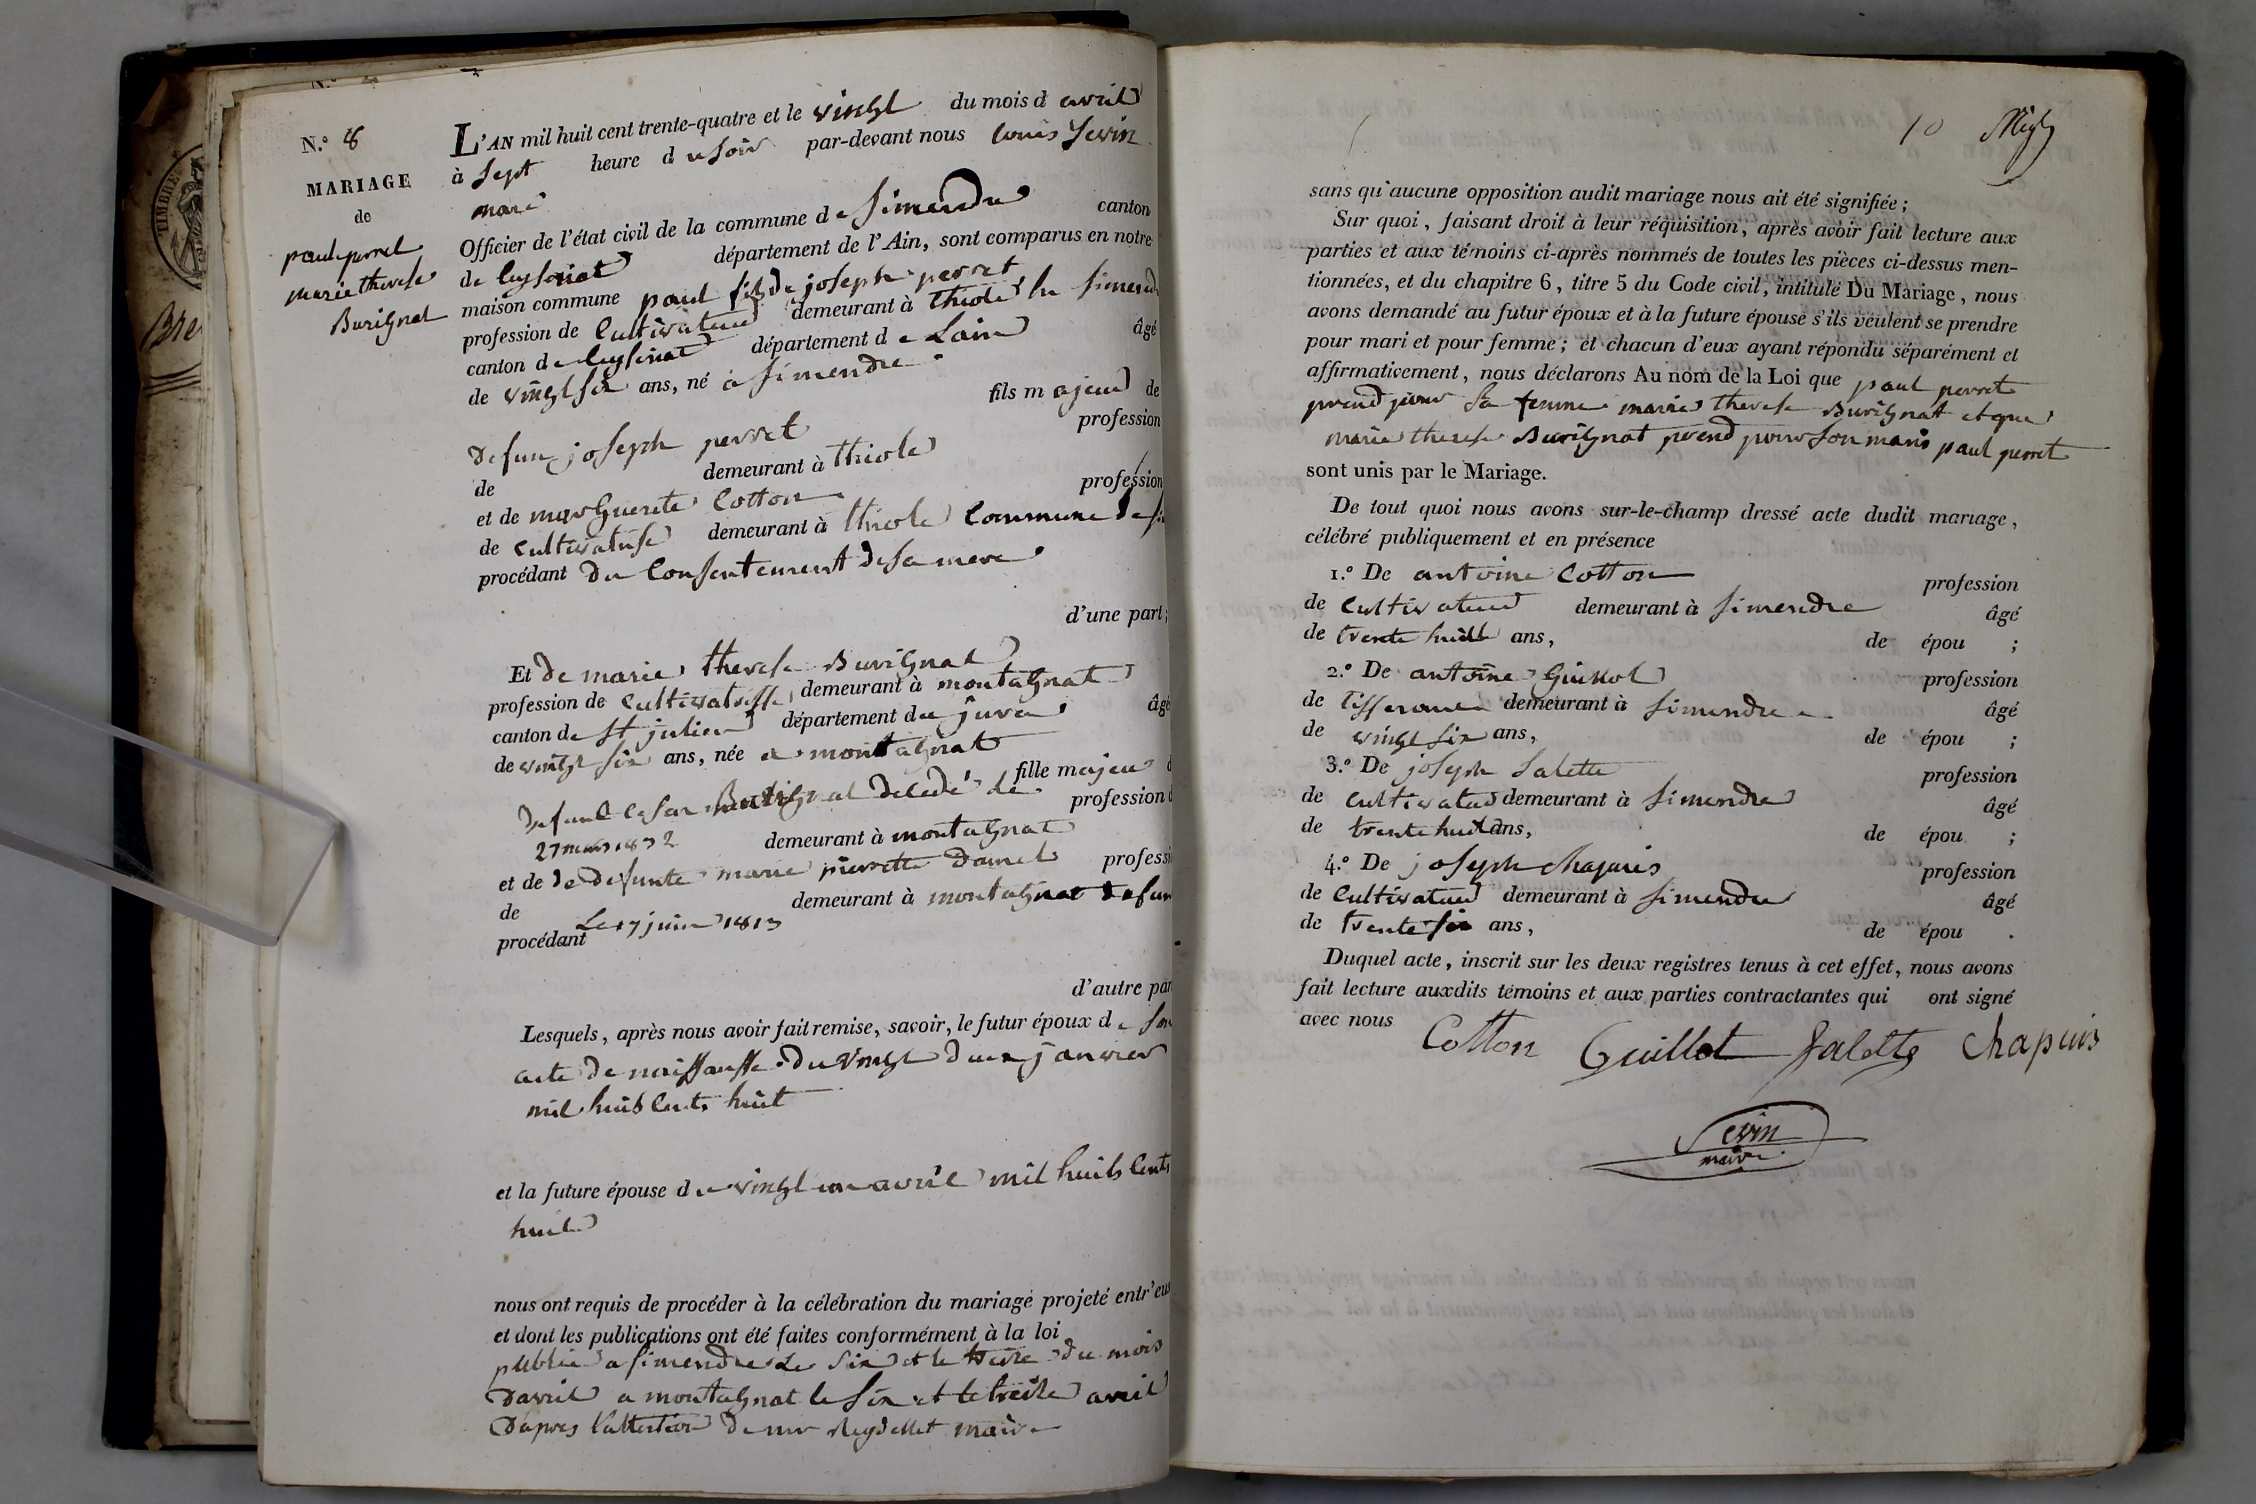 N.° 8
MARIAGE
de
paul perret
marie therese
Burignat
L'AN mil huit cent trente-quatre et le vingt du mois d avril
à sept heure d u soir par-devant nous louis Sevin
maire
Officier de l'état civil de la commune d e Simendre canton
de Ceyseriat département de l'Ain, sont comparus en notre
maison commune paul fils de joseph perret
profession de Cultivateur demeurant à thiole Simend
canton d e Ceyseriat département d e Lain âgé
de vingt six ans, né à Simendre
fils m ajeur de
defun joseph perret profession
de demeurant à thiole
et de marguerite Cotton profession
de cultivatrise demeurant à thiole Commune de si
procédant du Consentement de sa mere
d'une part;
Et de marie therese Burignat
profession de cultivatrisse demeurant à montagnat
canton de St julien département du jura âgé
de vingt six ans, née a montagnat
fille majeur d
defunt Cesar Burignat décedé le profession d
27 mars 1832 demeurant à montagnat
et de de defunte marie pierrette Daniel professi
de demeurant à montagnat defun
procédant Le 17 juin 1813
d'autre par
Lesquels, après nous avoir fait remise, savoir, le futur époux d e son
acte de naissansse du vingt deux janvier
mil huit Cents huit
et la future épouse d u vingt un avril mil huits Cents
huit
nous ont requis de procéder à la célébration du mariage projeté entr'eux
et dont les publications ont été faites conformément à la loi
publié a Simendre Le Six et le treize du mois
Davril a montagnat le Six et le treize avril
D'apres l'attestion de mr Reydellet maire
10
sans qu'aucune opposition audit mariage nous ait été signifiée;
Sur quoi, faisant droit à leur réquisition, après avoir fait lecture aux
parties et aux témoins ci-après nommés de toutes les pièces ci-dessus men-
tionnées, et du chapitre 6, titre 5 du Code civil, intitulé Du Mariage, nous
avons demandé au futur époux et à la future épouse s'ils veulent se prendre
pour mari et pour femme; et chacun d'eux ayant répondu séparément et
affirmativement, nous déclarons Au nom de la Loi que paul perret
prend pour sa femme marie therese Burignat et que
marie therese Burignat prend pour son maris paul perret
sont unis par le Mariage.
De tout quoi nous avons sur-le-champ dressé acte dudit mariage,
célébré publiquement et en présence
1.° De antoine Cotton profession
de Cultivateur demeurant à Simendre âgé
de trente huit ans, de épou ;
2.° De antoine Guillot profession
de tisserant demeurant à Simendre âgé
de vingt six ans, de épou ;
3.° De joseph Salette profession
de cultivateur demeurant à Simendre âgé
de trente huit ans, de épou ;
4.° De joseph chapuis profession
de Cultivateur demeurant à Simendre âgé
de trente six ans, de épou .
Duquel acte, inscrit sur les deux registres tenus à cet effet, nous avons
fait lecture auxdits témoins et aux parties contractantes qui ont signé
avec nous
Cotton Guillot Salette Chapuis
Sevin
maire